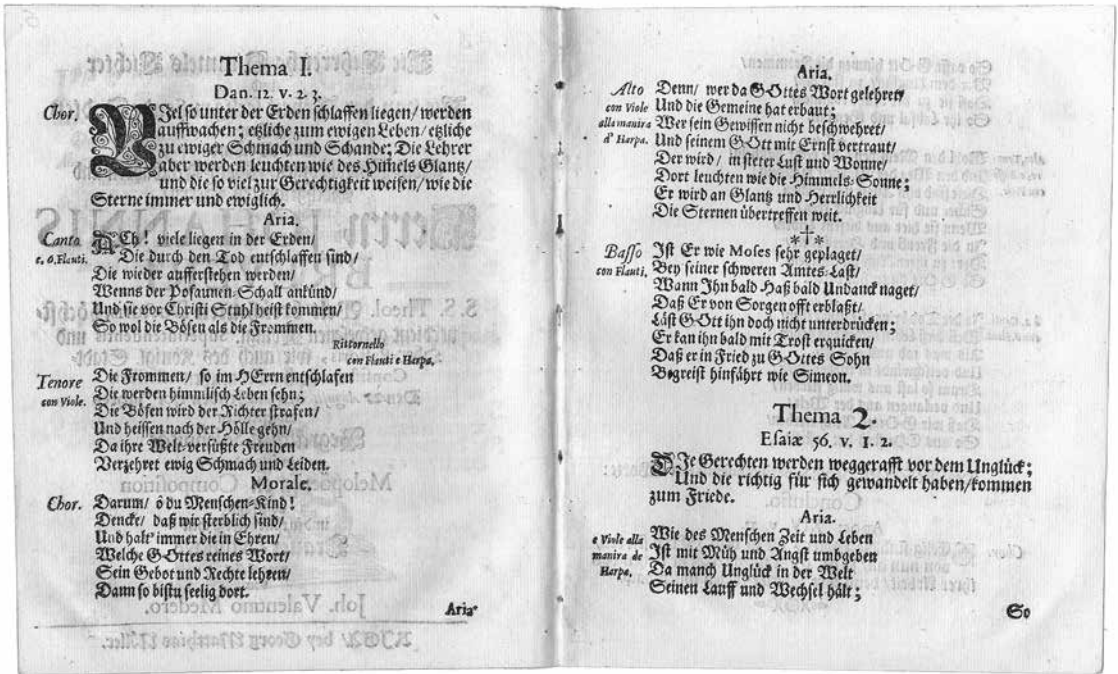 Thema I.
Dan. 12. v. 2. 3.
Chor. VJel so unter der Erden schlaffen liegen/ werden
auffwachen; etzliche zum ewigen Leben/ etzliche
zu ewiger Schmach und Schande: Die Lehrer
aber werden leuchten wie des Him̃els Glantz/
und die so viel zur Gerechtigkeit weisen/ wie die
Sterne immer und ewiglich.
Aria.
Canto ACh! viele liegen in der Erden/
e. 6. Flauti. Die durch den Tod entschlaffen sind/
Die wieder aufferstehen werden/
Wenns der Posaunen-Schall ankünd/
Und sie vor Christi Stuhl heist kommen/
So wol die Bösen als die Frommen.
Rittornello
con Flauti e Harpa.
Tenore Die Frommen/ so im HErrn entschlafen
con Viole. Die werden himmlisch Leben sehn;
Die Bösen wird der Richter strafen/
Und heissen nach der Hölle gehn/
Da ihre Welt-versüßte Freuden
Verzehret ewig Schmach und Leiden.
Morale.
Chor. Darum/ ô du Menschen-Kind!
Dencke/ daß wir sterblich sind/
Und halt' immer die in Ehren/
Welche GOttes reines Wort/
Sein Gebot und Rechte lehren/
Dann so bistu seelig dort.
Aria.
Aria.
Alto Denn/ wer da GOttes Wort gelehret/
con Viole Und die Gemeine hat erbaut;
alla manira Wer sein Gewissen nicht beschwehret/
d' Harpa. Und seinem GOtt mit Ernst vertraut/
Der wird/ in steter Lust und Wonne/
Dort leuchten wie die Himmels-Sonne;
Er wird an Glantz und Herrlichkeit
Die Sternen übertreffen weit.
*†*
Basso Ist Er wie Moses sehr geplaget/
con Flauti, Bey seiner schweren Amtes-Last/
Wann Ihn bald Haß bald Undanck naget/
Daß Er von Sorgen offt erblaßt/
Läst GOtt ihn doch nicht unterdrücken;
Er kan ihn bald mit Trost erquicken/
Daß er in Fried zu GOttes Sohn
Begreist hinfährt wie Simeon.
Thema 2.
Esaiæ 56. v. 1. 2.
DJe Gerechten werden weggerafft vor dem Unglück;
Und die richtig für sich gewandelt haben/ kommen
zum Friede.
Aria.
e Viole alla Wie des Menschen Zeit und Leben
manira de Ist mit Müh und Angst umbgeben
Harpa, Da manch Unglück in der Welt
Seinen Lauff und Wechsel hält;
So